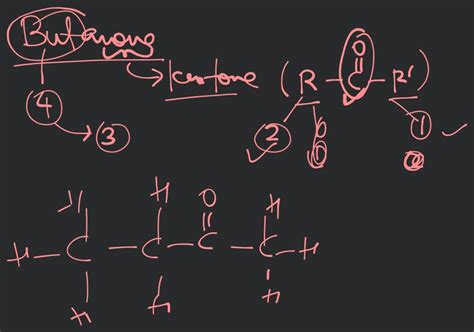 Butanone
Ketone (R - C - R')
O
4
3
2
1
1
H H O H
H - C - C - C - C - H
H H H